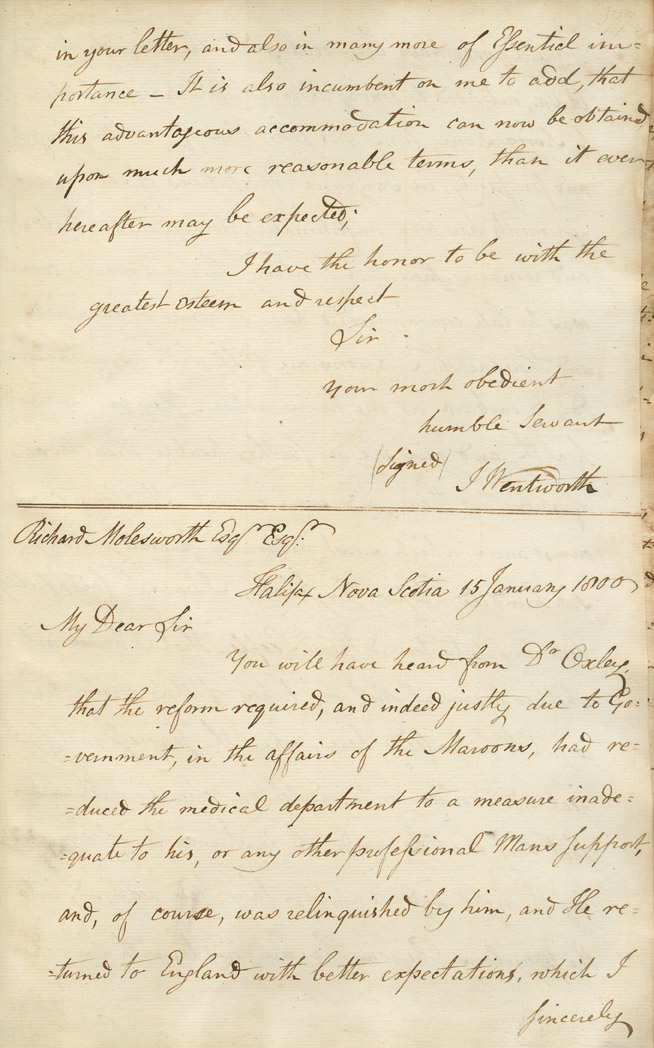 in your letter, and also in many more of Essential im=
portance – It is also incumbent on me to add, that
this advantageous accommodation can now be obtained,
upon much more reasonable terms, than it ever
hereafter may be expected;
I have the honor to be with the
greatest esteem and respect
Sir
your most obedient
humble Servant
(Signed) J Wentworth
Richard Molesworth Esqr Esqr:
Halifax Nova Scotia 15 January 1800
My Dear Sir
You will have heard from Dr Oxley,
that the reform required, and indeed justly due to Go=
=vernment, in the affairs of the Maroons, had re=
=duced the medical department to a measure inade=
=quate to his, or any other professional Mans support,
and, of course, was relinquished by him, and He re=
=turned to England with better expectations, which I
sincerely